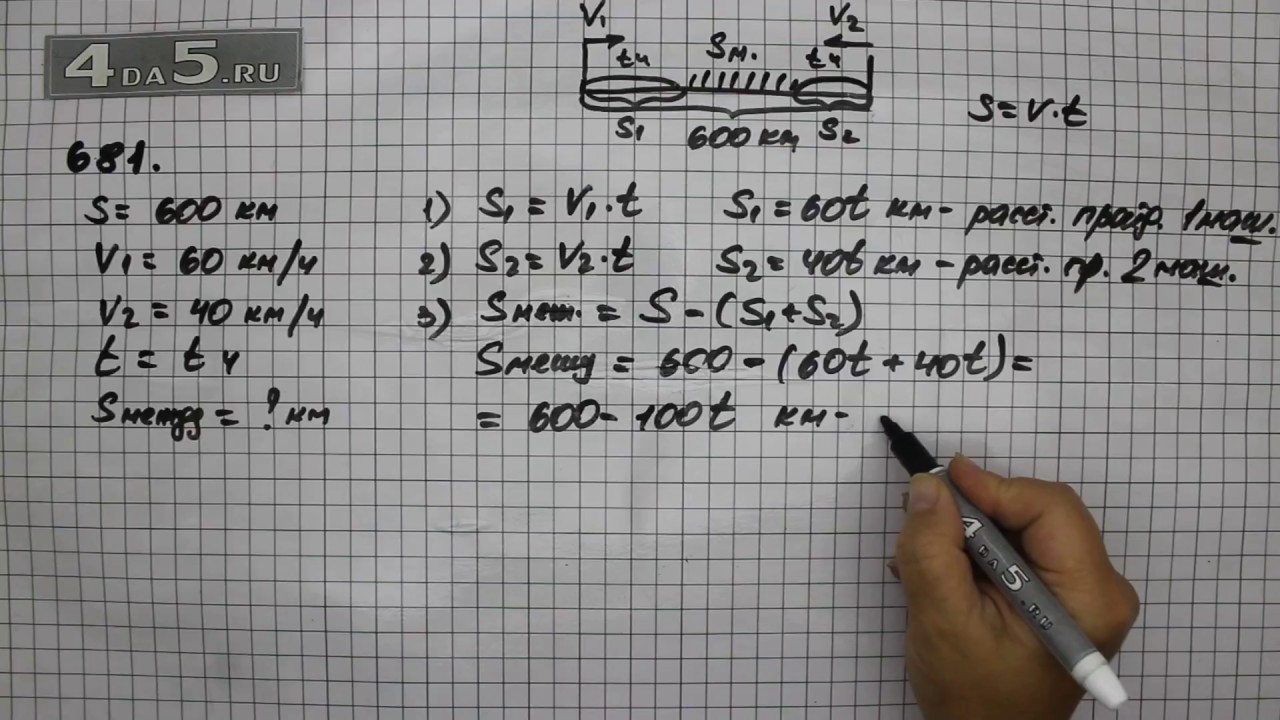 4DA5.RU
V₁ V₂
t ч Sм. t ч
S₁ 600 км S₂
S = V · t
681.
S = 600 км
V₁ = 60 км/ч
V₂ = 40 км/ч
t = t ч
Sмежд = ? км
1) S₁ = V₁ · t S₁ = 60t км - расст. пройд. 1 маш.
2) S₂ = V₂ · t S₂ = 40t км - расст. пр. 2 маш.
3) Sмеж. = S - (S₁ + S₂)
Sмежд = 600 - (60t + 40t) =
= 600 - 100t км -
4DA5.RU